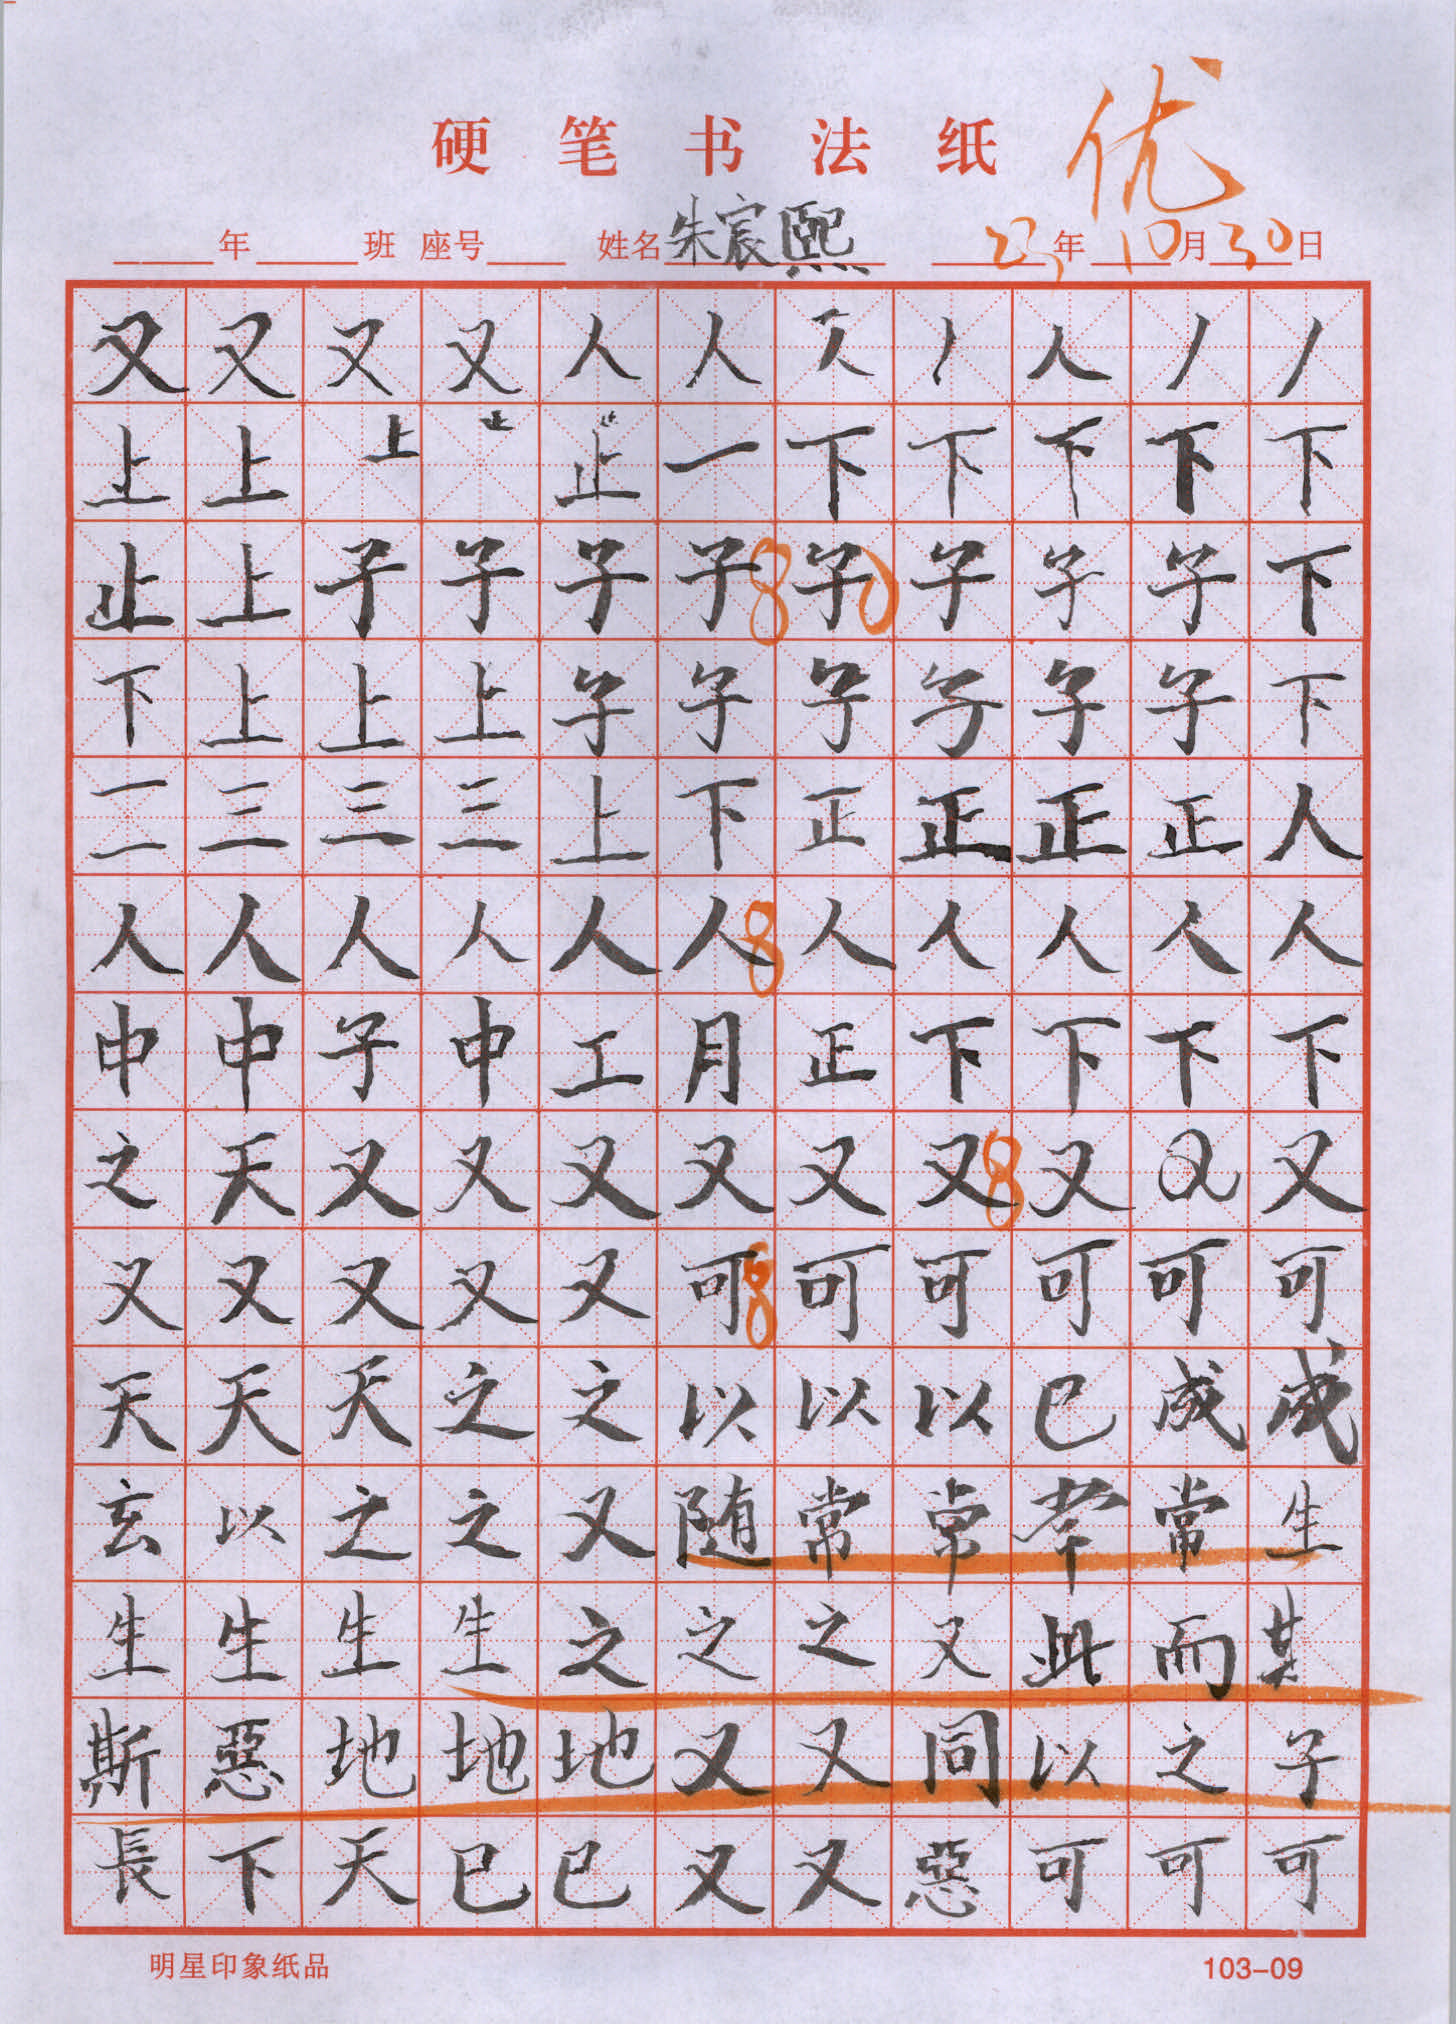 硬笔书法纸
优
年 班 座号 姓名 朱宸熙 23年 10月 30日
又又又又人人人丿人丿丿
上上上止止一下下下下下
止上子子子子子子子子下
下上上上子子子子子子下
二三三三上下正正正正人
人人人人人人人人人人人
中中子中工月正下下下下
之天又又又又又又又又又
又又又又又可可可可可可
天天天之之以以以已成成
玄以之之又随常常常常生
生生生生之之之又此而其
斯惡地地地又又同以之子
長下天已已又又惡可可可
明星印象纸品 103-09